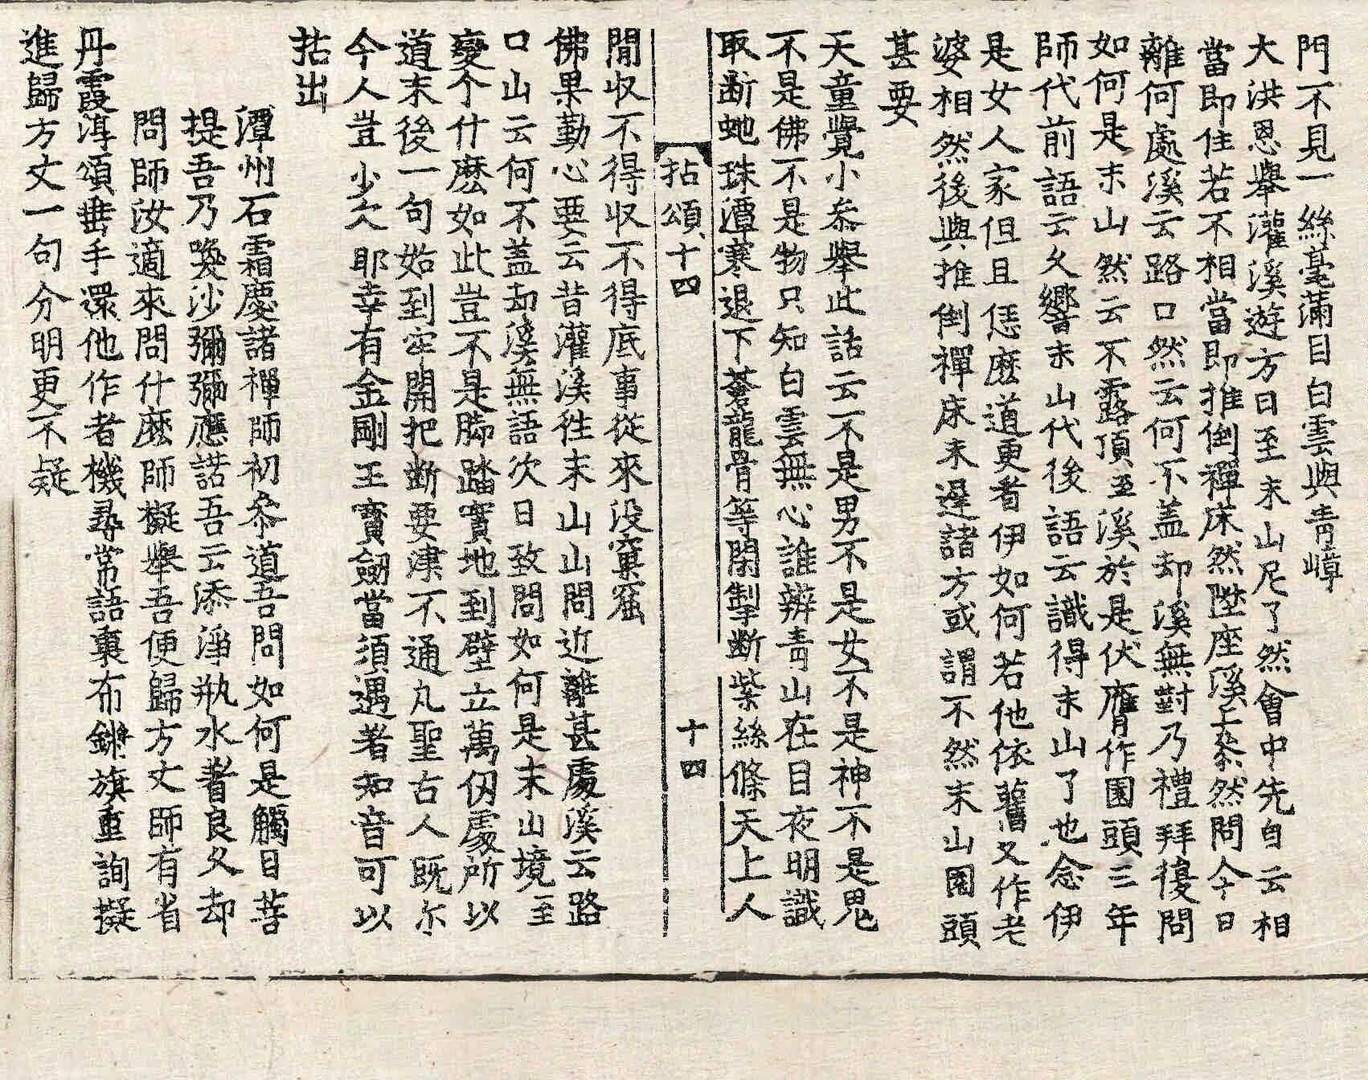 門不見一絲毫滿目白雲與青嶂
大洪恩擧灌溪遊方日至末山尼了然會中先白云相
當即住若不相當即推倒禪床然陞座溪上叅然問今日
離何處溪云路口然云何不盖却溪無對乃禮拜後問
如何是末山然云不露頂至溪於是伏膺作園頭三年
師代前語云久響末山代後語云識得末山了也念伊
是女人家但且恁麽道更看伊如何若他依舊又作老
婆相然後與推倒禪床未遅諸方或謂不然末山園頭
甚要
天童覺小叅擧此話云不是男不是女不是神不是鬼
不是佛不是物只知白雲無心誰辨青山在目夜明識
取断虵珠潭寒退下蒼龍骨等閑掣断紫絲絛天上人
拈頌十四　十四
閒収不得収不得底事從來没窠窟
佛果勤心要云昔灌溪徃末山山問近離甚處溪云路
口山云何不盖却溪無語次日致問如何是末山境至
變个什麽如此豈不是脚踏實地到壁立萬仭處所以
道末後一句始到牢關把断要津不通凡聖古人既尓
今人豈少欠耶幸有金剛王寳劒當須遇著知音可以
拈出
潭州石霜慶諸禪師初叅道吾問如何是觸目菩
提吾乃喚沙彌彌應諾吾云添淨瓶水著良久却
問師汝適來問什麽師擬擧吾便歸方丈師有省
丹霞淳頌垂手還他作者機尋常語裏布鏘旗重詢擬
進歸方丈一句分明更不疑